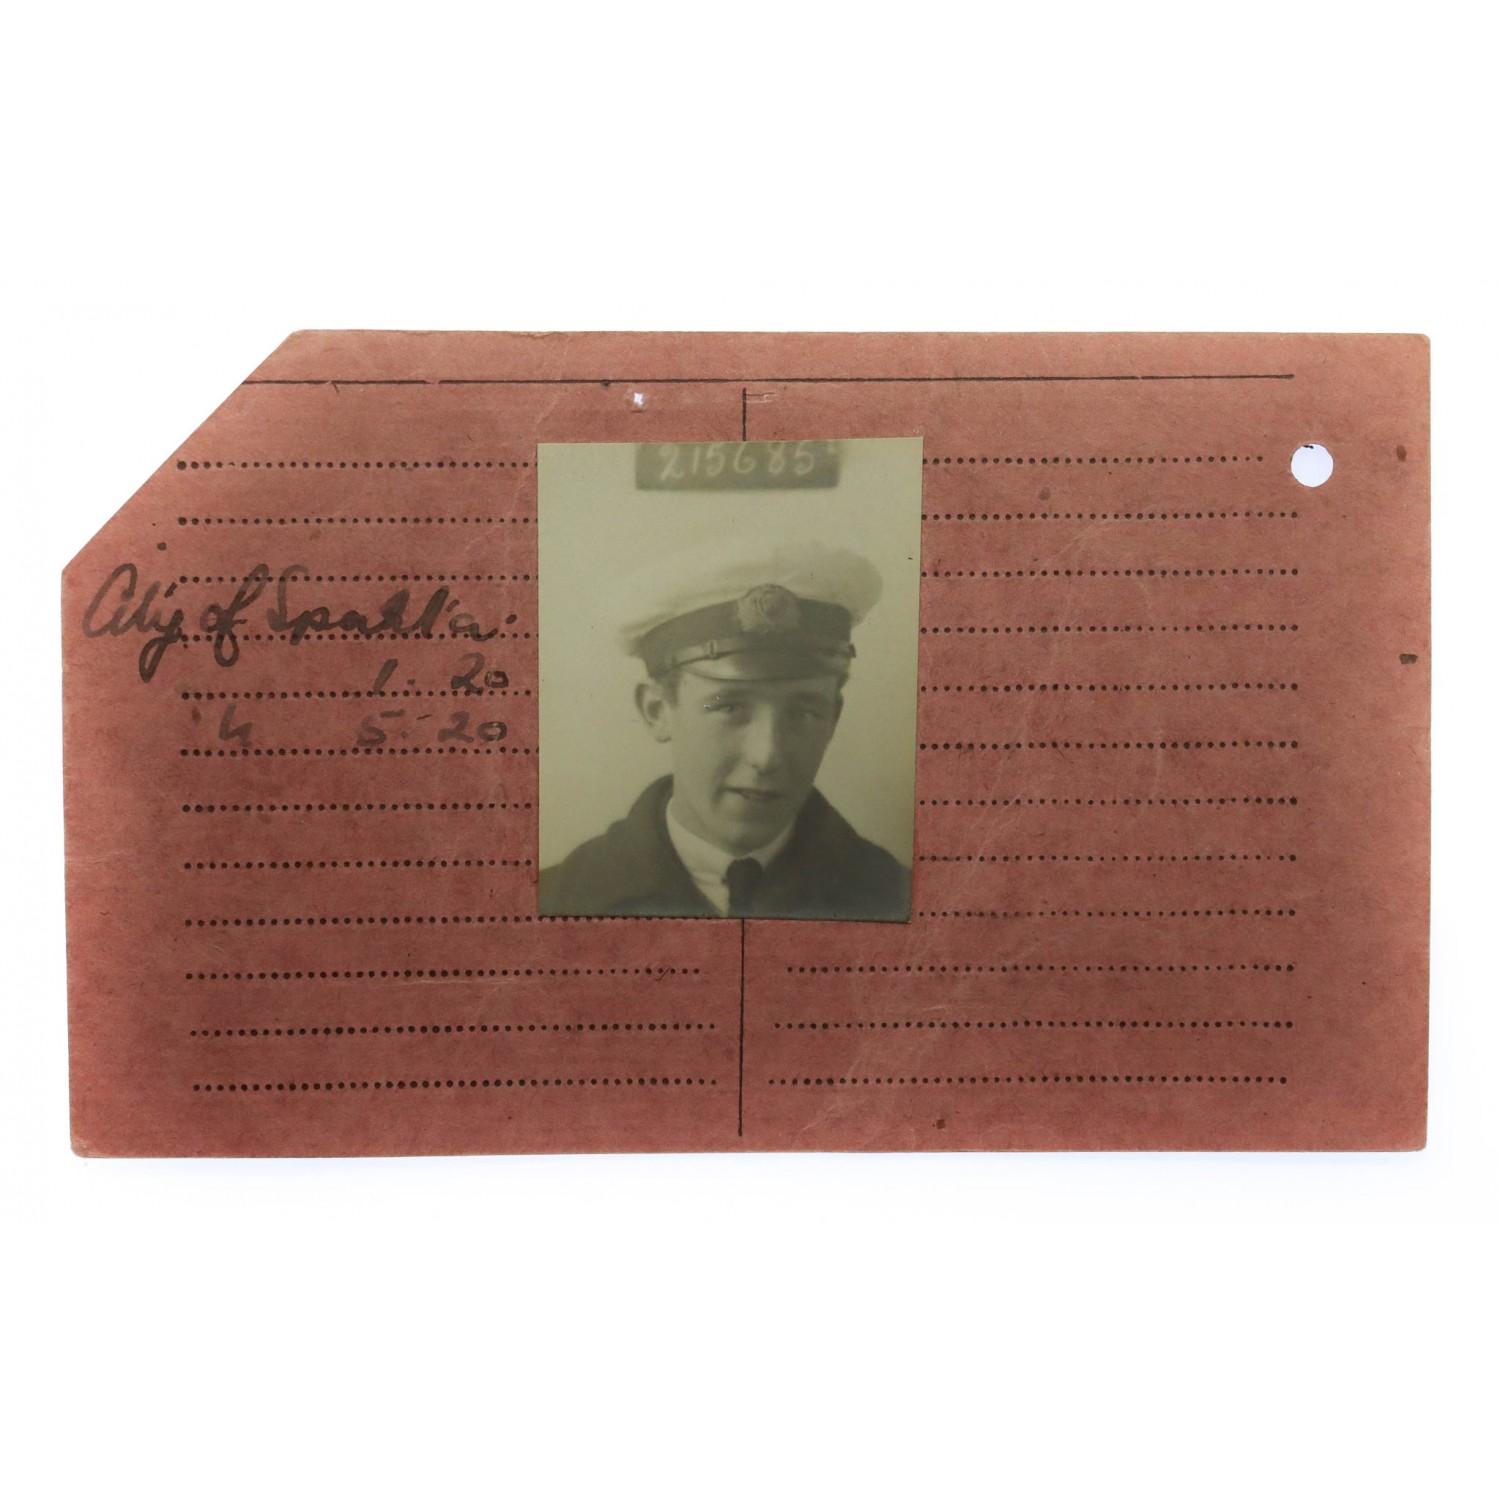 215685
City of Sparta.
1. 20
4 5. 20